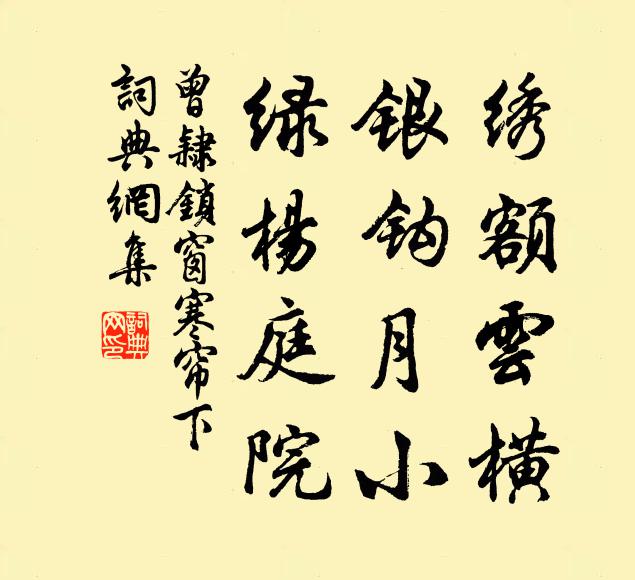 绣额雲橫
银钩月小
绿楊庭院
曾隸鎖窗寒帘下
詞典網集
詞典网印